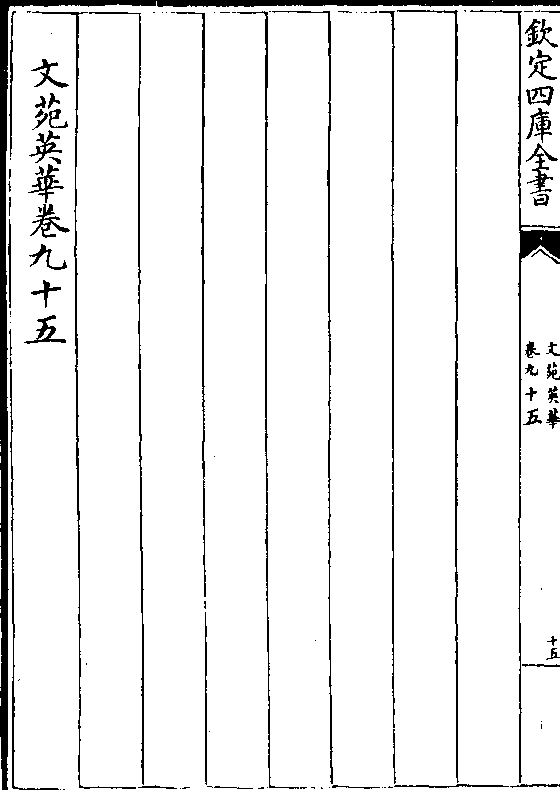 欽定四庫全書
文苑英華
卷九十五
十五
文苑英華卷九十五